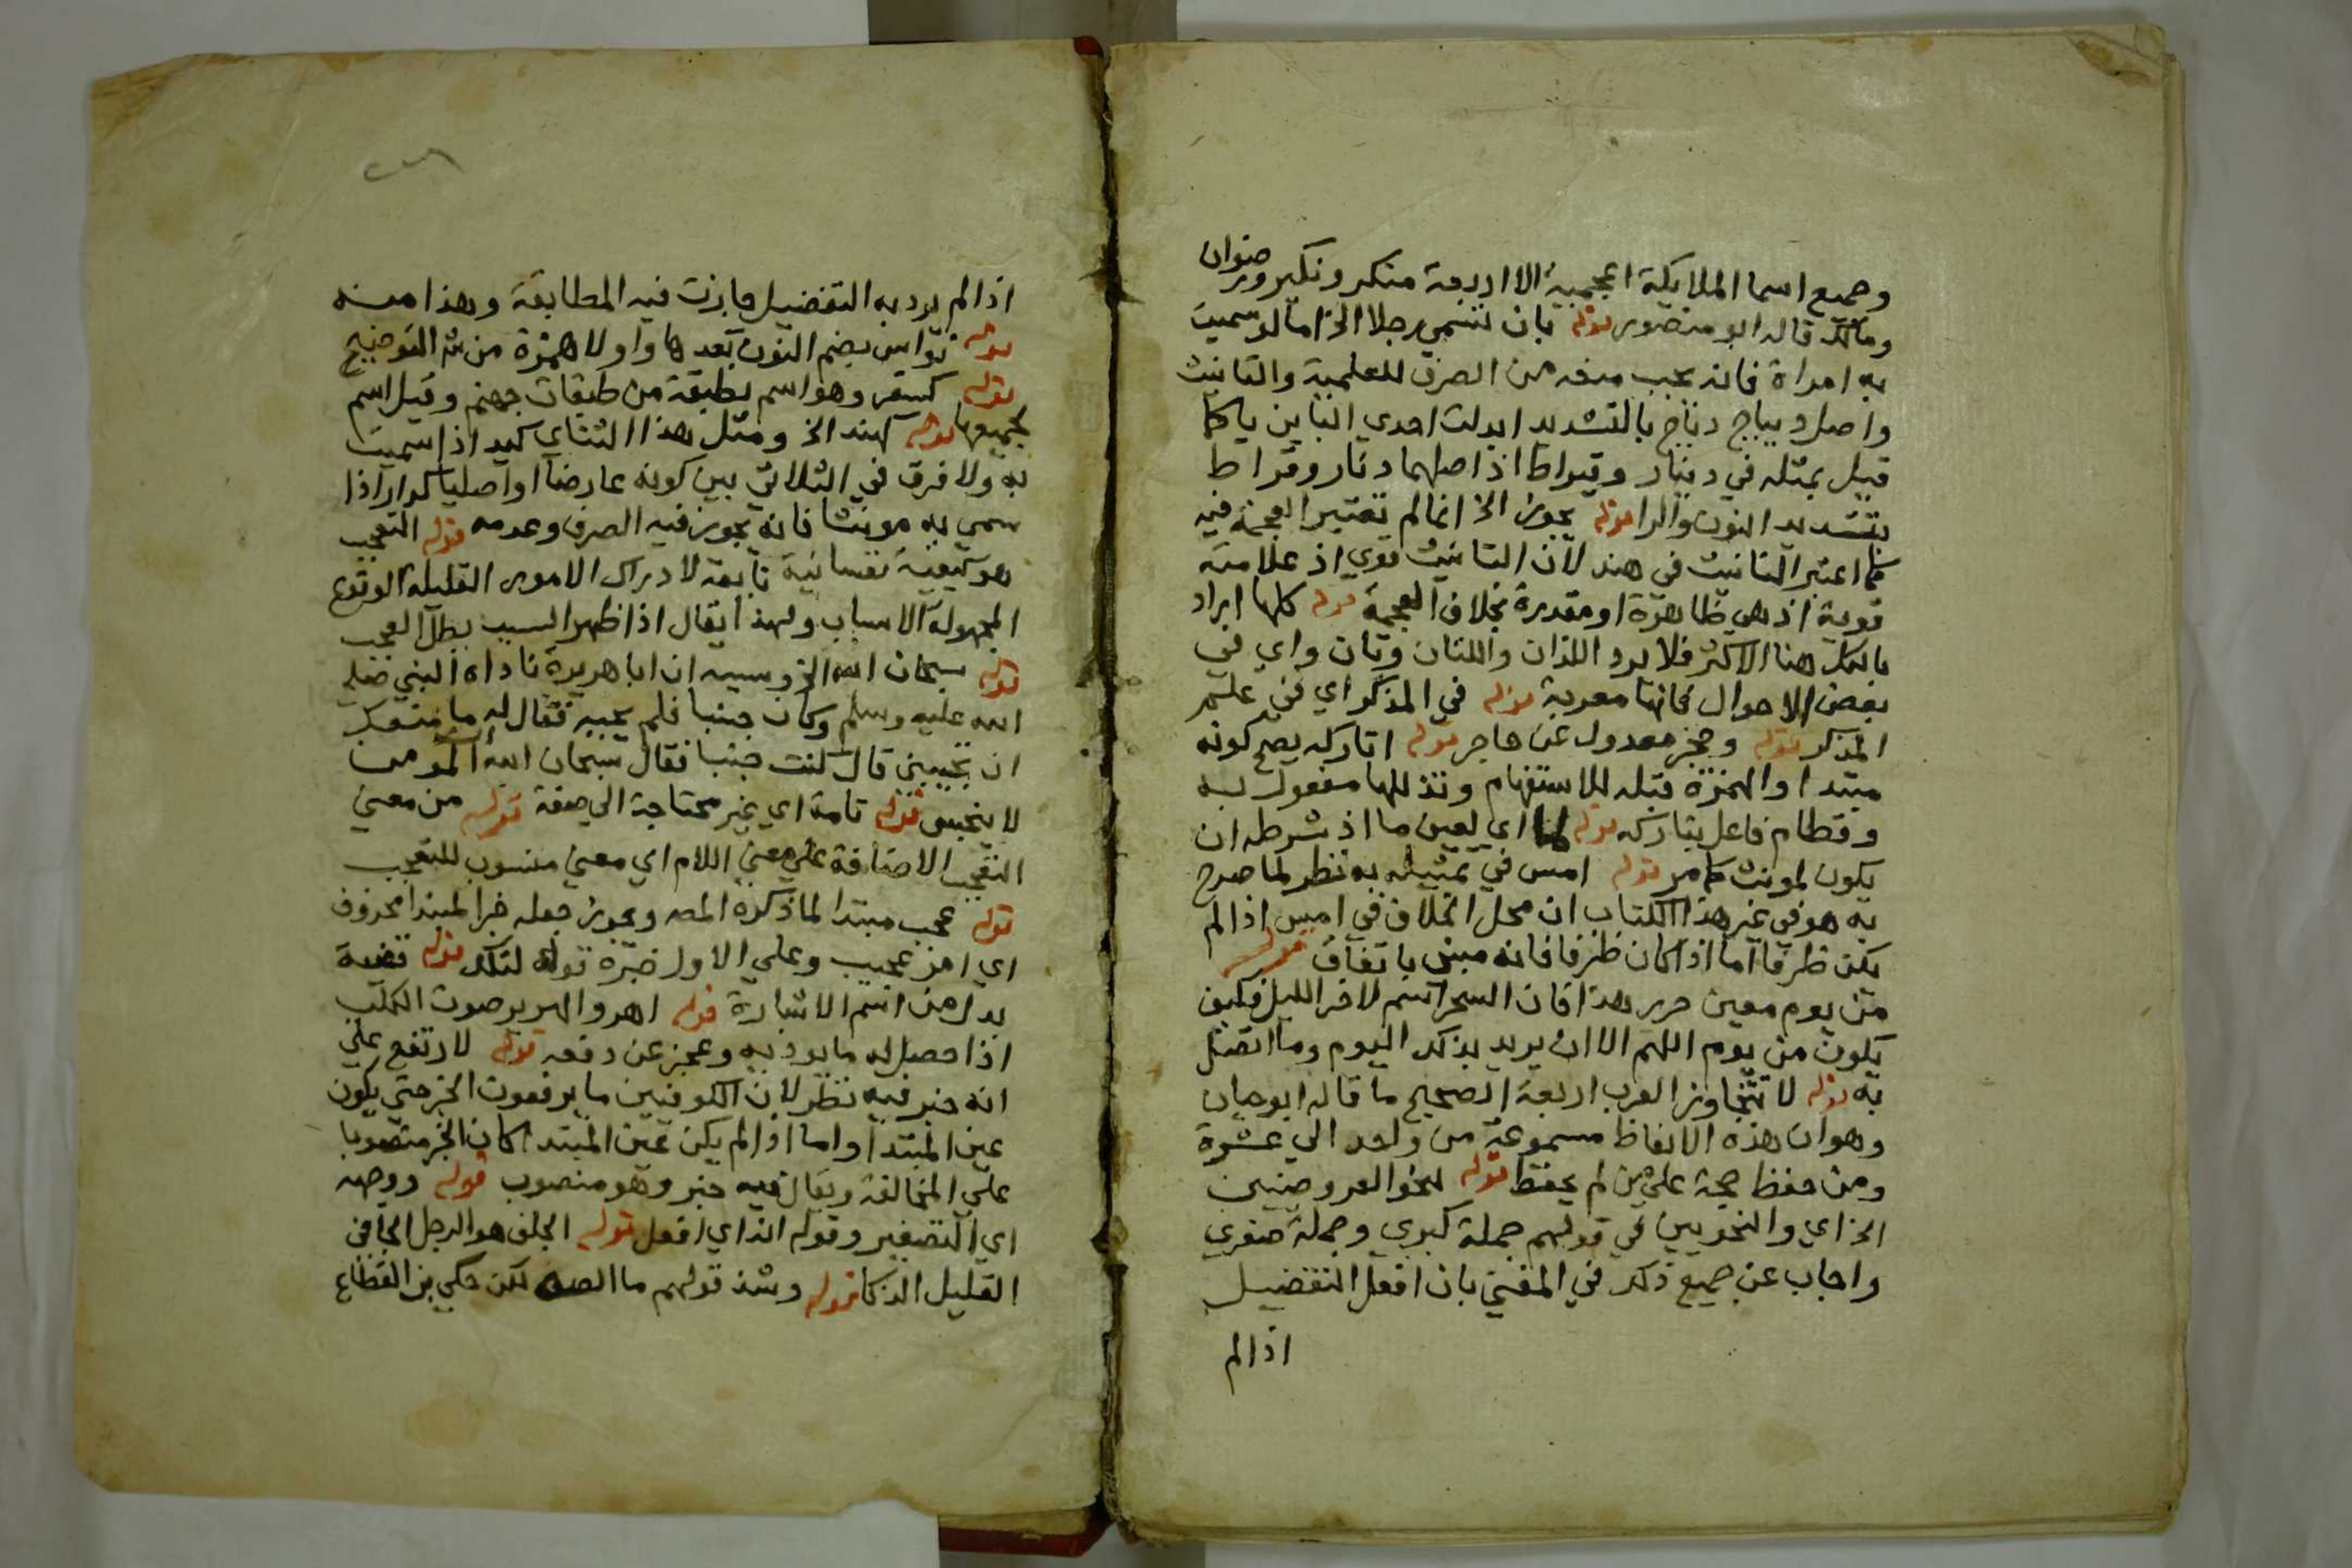 وجميع اسما الملايكة اعجمية الا اربعة منكر ونكير ورضوان
ومالك قاله ابو منصور قوله بان تسمي رجلا الخ اما لو سميت
به امراة فانه يجب منعه من الصرف للعلمية والتانيث
واصل ديباج دباج بالتشديد ابدلت احدي الباين يا كما
قيل بمثله في دينار وقيراط اذ اصلهما دنار وقراط
بتشديد النون والرا قوله يجوز الخ انما لم تعتبر العجمة فيه
كما اعتبر التانيث في هند لان التانيث قوي اذ علامته
قوية اذ هي ظاهرة او مقدرة بخلاف العجمة قوله كلها ايراد
بالكل هنا الاكثر فلا يرد اللذان واللتان وتان واي في
بعض الاحوال فانها معربة قوله في المذكر اي في علم
المذكر قوله وحجز معدول عن حاجر قوله اتاركه يصح كونه
مبتدا والهمزة قبله للاستفهام وتدللها مفعول به
وقطام فاعل بتاركه قوله لها اي لعين ما اذ شرطه ان
يكون لمونث كما مر قوله امس في تمثيله به نظر لما صرح
به هو في غير هذا الكتاب ان محل الخلاف في امس اذا لم
يكن ظرفا اما اذا كان ظرفا فانه مبني باتفاق قوله سحر
من يوم معين حرر هذا فان السحر اسم لاخر الليل فكيف
يكون من يوم اللهم الا ان يريد بذلك اليوم وما اتصل
به قوله لا تتجاوز العرب اربعة الصحيح ما قاله ابو حيان
وهو ان هذه الالفاظ مسموعة من واحد الي عشرة
ومن حفظ حجة علي من لم يحفظ قوله لحو العروضيين
الخ اي والنحويين في قولهم جملة كبري وجملة صغري
واجاب عن جميع ذلك في المغني بان افعل التفضيل
اذا لم
اذا لم يرد به التفضيل جازت فيه المطابقة وهذا منه
قوله نواس بضم النون بعدها واو لا همزة من ش التوضيح
قوله كسقر وهو اسم لطبقة من طبقات جهنم وقيل اسم
لجميعها قوله كهند الخ ومثل هذا الثناي كيد اذا سميت
به ولا فرق في الثلاثي بين كونه عارضا او اصليا كدار اذا
سمي به مونثا فانه يجوز فيه الصرف وعدمه قوله التعجب
هو كيفية نفسانية تابعة لادراك الامور القليلة الوقوع
المجهولة الاسباب ولهذا يقال اذا ظهر السبب بطل العجب
قوله سبحان الله الخ وسببه ان ابا هريرة ناداه النبي صلي
الله عليه وسلم وكان جنبا فلم يجبه فقال له ما منعك
ان تجيبني قال كنت جنبا فقال سبحان الله المومن
لا ينجس قوله تامة اي غير محتاجة الي صفة قوله من معني
التعجب الاضافة علي معني اللام اي معني منسوب للتعجب
قوله عجب مبتدا لما ذكره المصه ويجوز جعله خبرا لمبتدا محذوف
اي امر عجيب وعلي الاول خبره قوله لتلك قوله قضية
بدل من اسم الاشارة قوله اهر والهرير صوت الكلب
اذا حصل له ما يوذيه وعجز عن دفعه قوله لارتفع علي
انه خبر فيه نظر لان الكوفيين ما يرفعون الخبر حتي يكون
عين المبتدا واما اذا لم يكن عين المبتدا كان الخبر منصوبا
علي المخالفة ويقال فيه خبر وهو منصوب قوله ووجهه
اي التصغير وقوله انه اي افعل قوله الجلف هو الرجل الجافي
القليل الذكا قوله وشذ قولهم ما الصه لكن حكي بن القطاع